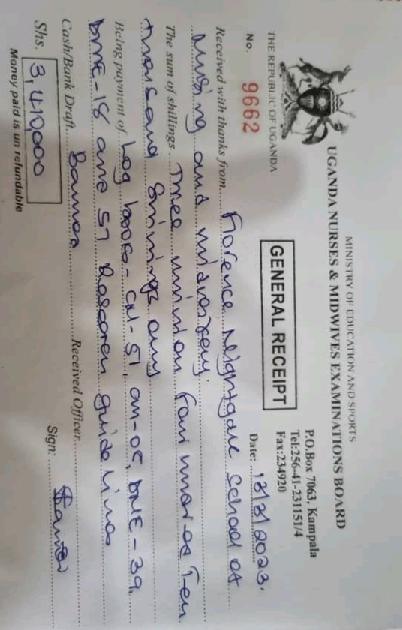 MINISTRY OF EDUCATION AND SPORTS
UGANDA NURSES & MIDWIVES EXAMINATIONS BOARD
THE REPUBLIC OF UGANDA
P.O.Box 7063, Kampala
Tel:256-41-231151/4
Fax:234920
GENERAL RECEIPT
No. 9662
Date: 13/3/2023.
Received with thanks from Florence Nightgale School of
Nursing and midwifery.
The sum of shillings Three million Four Ten
thousand Shillings only
Being payment of Log books - CN-51, CM-05, DNE-39,
DME-18 and 57 Research guidelines
Cash/Bank Draft Received Officer
Shs. 3,410,000
Sign:
Money paid is un refundable